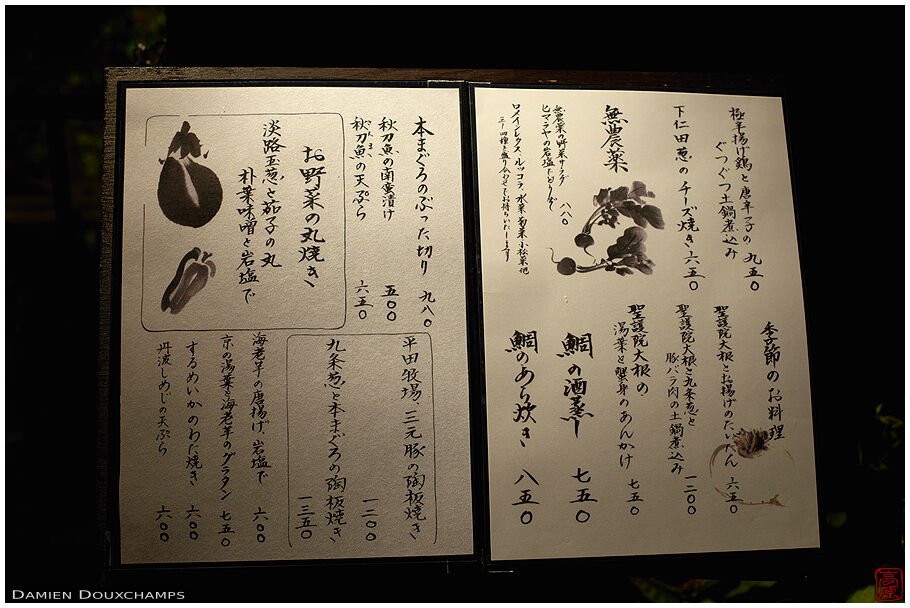 極辛揚げ鶏と唐辛子の
ぐつぐつ土鍋煮込み 九五〇
下仁田葱のチーズ焼き 六五〇
無農薬
無農薬の野菜サラダ
ヒマラヤの岩塩でどうぞ 八八〇
ロメインレタス・ルッコラ・水菜・菊菜・小松菜他
季節のお料理
聖護院大根とお揚げのたいたん 六五〇
聖護院大根と九条葱と
豚バラ肉の土鍋煮込み 一二〇〇
聖護院大根の
湯葉と蟹身のあんかけ 七五〇
鯛の酒蒸し 七五〇
鯛のあら炊き 八五〇
本まぐろのぶった切り 九八〇
秋刀魚の南蛮漬け 五〇〇
秋刀魚の天ぷら 六五〇
お野菜の丸焼き
淡路玉葱と茄子の丸
朴葉味噌と岩塩で
平田牧場 三元豚の陶板焼き 一二〇〇
九条葱と本まぐろの陶板焼き 一三五〇
海老芋の唐揚げ 岩塩で 六〇〇
京の湯葉と海老芋のグラタン 七五〇
するめいかのわた焼き 六〇〇
丹波しめじの天ぷら 六〇〇
Damien Douxchamps